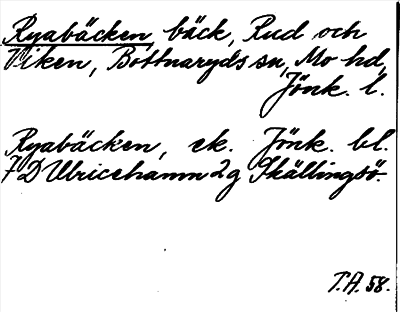 Ryabäcken, bäck, Rud och
Viken, Bottnaryds sn, Mo hd,
Jönk. l.
Ryabäcken, ek. Jönk. bl.
7 D Ulricehamn 2g Skällingsö.
T.A. 58.